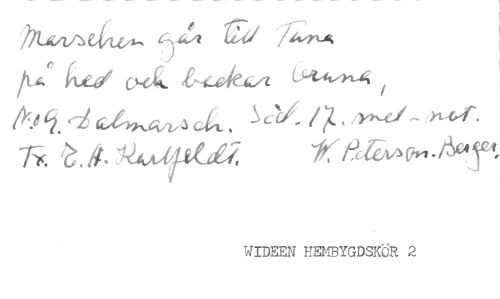 Marschen går till Tuna
på hed och backar bruna,
N:o 9. Dalmarsch. Sid. 17. mel-not.
Tx. E. A. Karlfeldt. W. Peterson-Berger.
WIDEEN HEMBYGDSKÖR 2